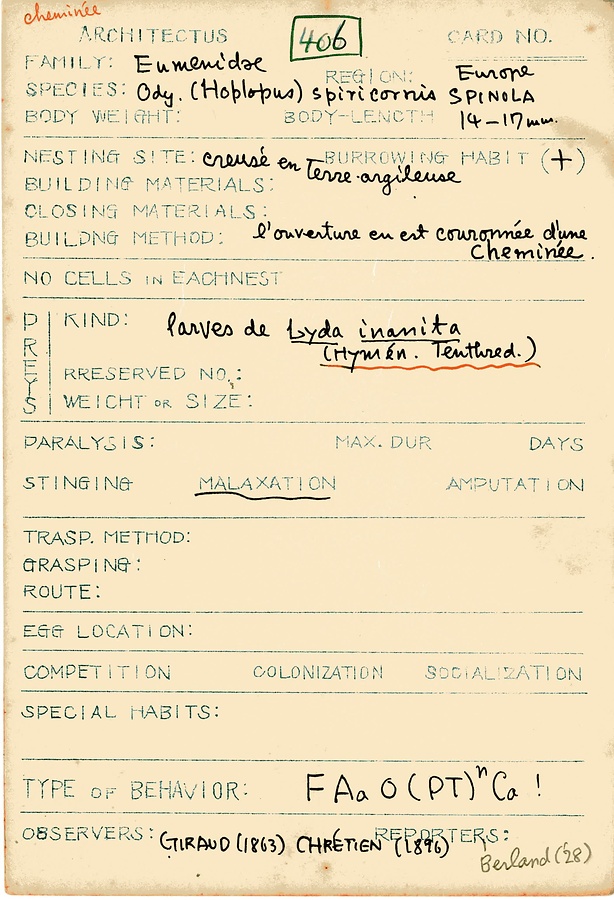 cheminée
ARCHITECTUS 406 CARD NO.
FAMILY: Eumenidae REGION: Europe
SPECIES: Ody. (Hoplopus) spiricornis SPINOLA
BODY WEIGHT: BODY-LENGTH 14-17mm.
NESTING SITE: creusé en Terre argileuse BURROWING HABIT (+)
BUILDING MATERIALS:
CLOSING MATERIALS:
BUILDNG METHOD: l'ouverture en est couronnée d'une
Cheminée.
NO CELLS IN EACHNEST
PREYS
KIND: larves de Lyda inanita
(Hymén. Tenthred.)
RRESERVED NO.:
WEIGHT OR SIZE:
PARALYSIS: MAX. DUR DAYS
STINGING MALAXATION AMPUTATION
TRASP. METHOD:
GRASPING:
ROUTE:
EGG LOCATION:
COMPETITION COLONIZATION SOCIALIZATION
SPECIAL HABITS:
TYPE OF BEHAVIOR: FAaO(PT)ⁿCa!
OBSERVERS: GIRAUD (1863) CHRÉTIEN (1896) REPORTERS:
Berland ('28)